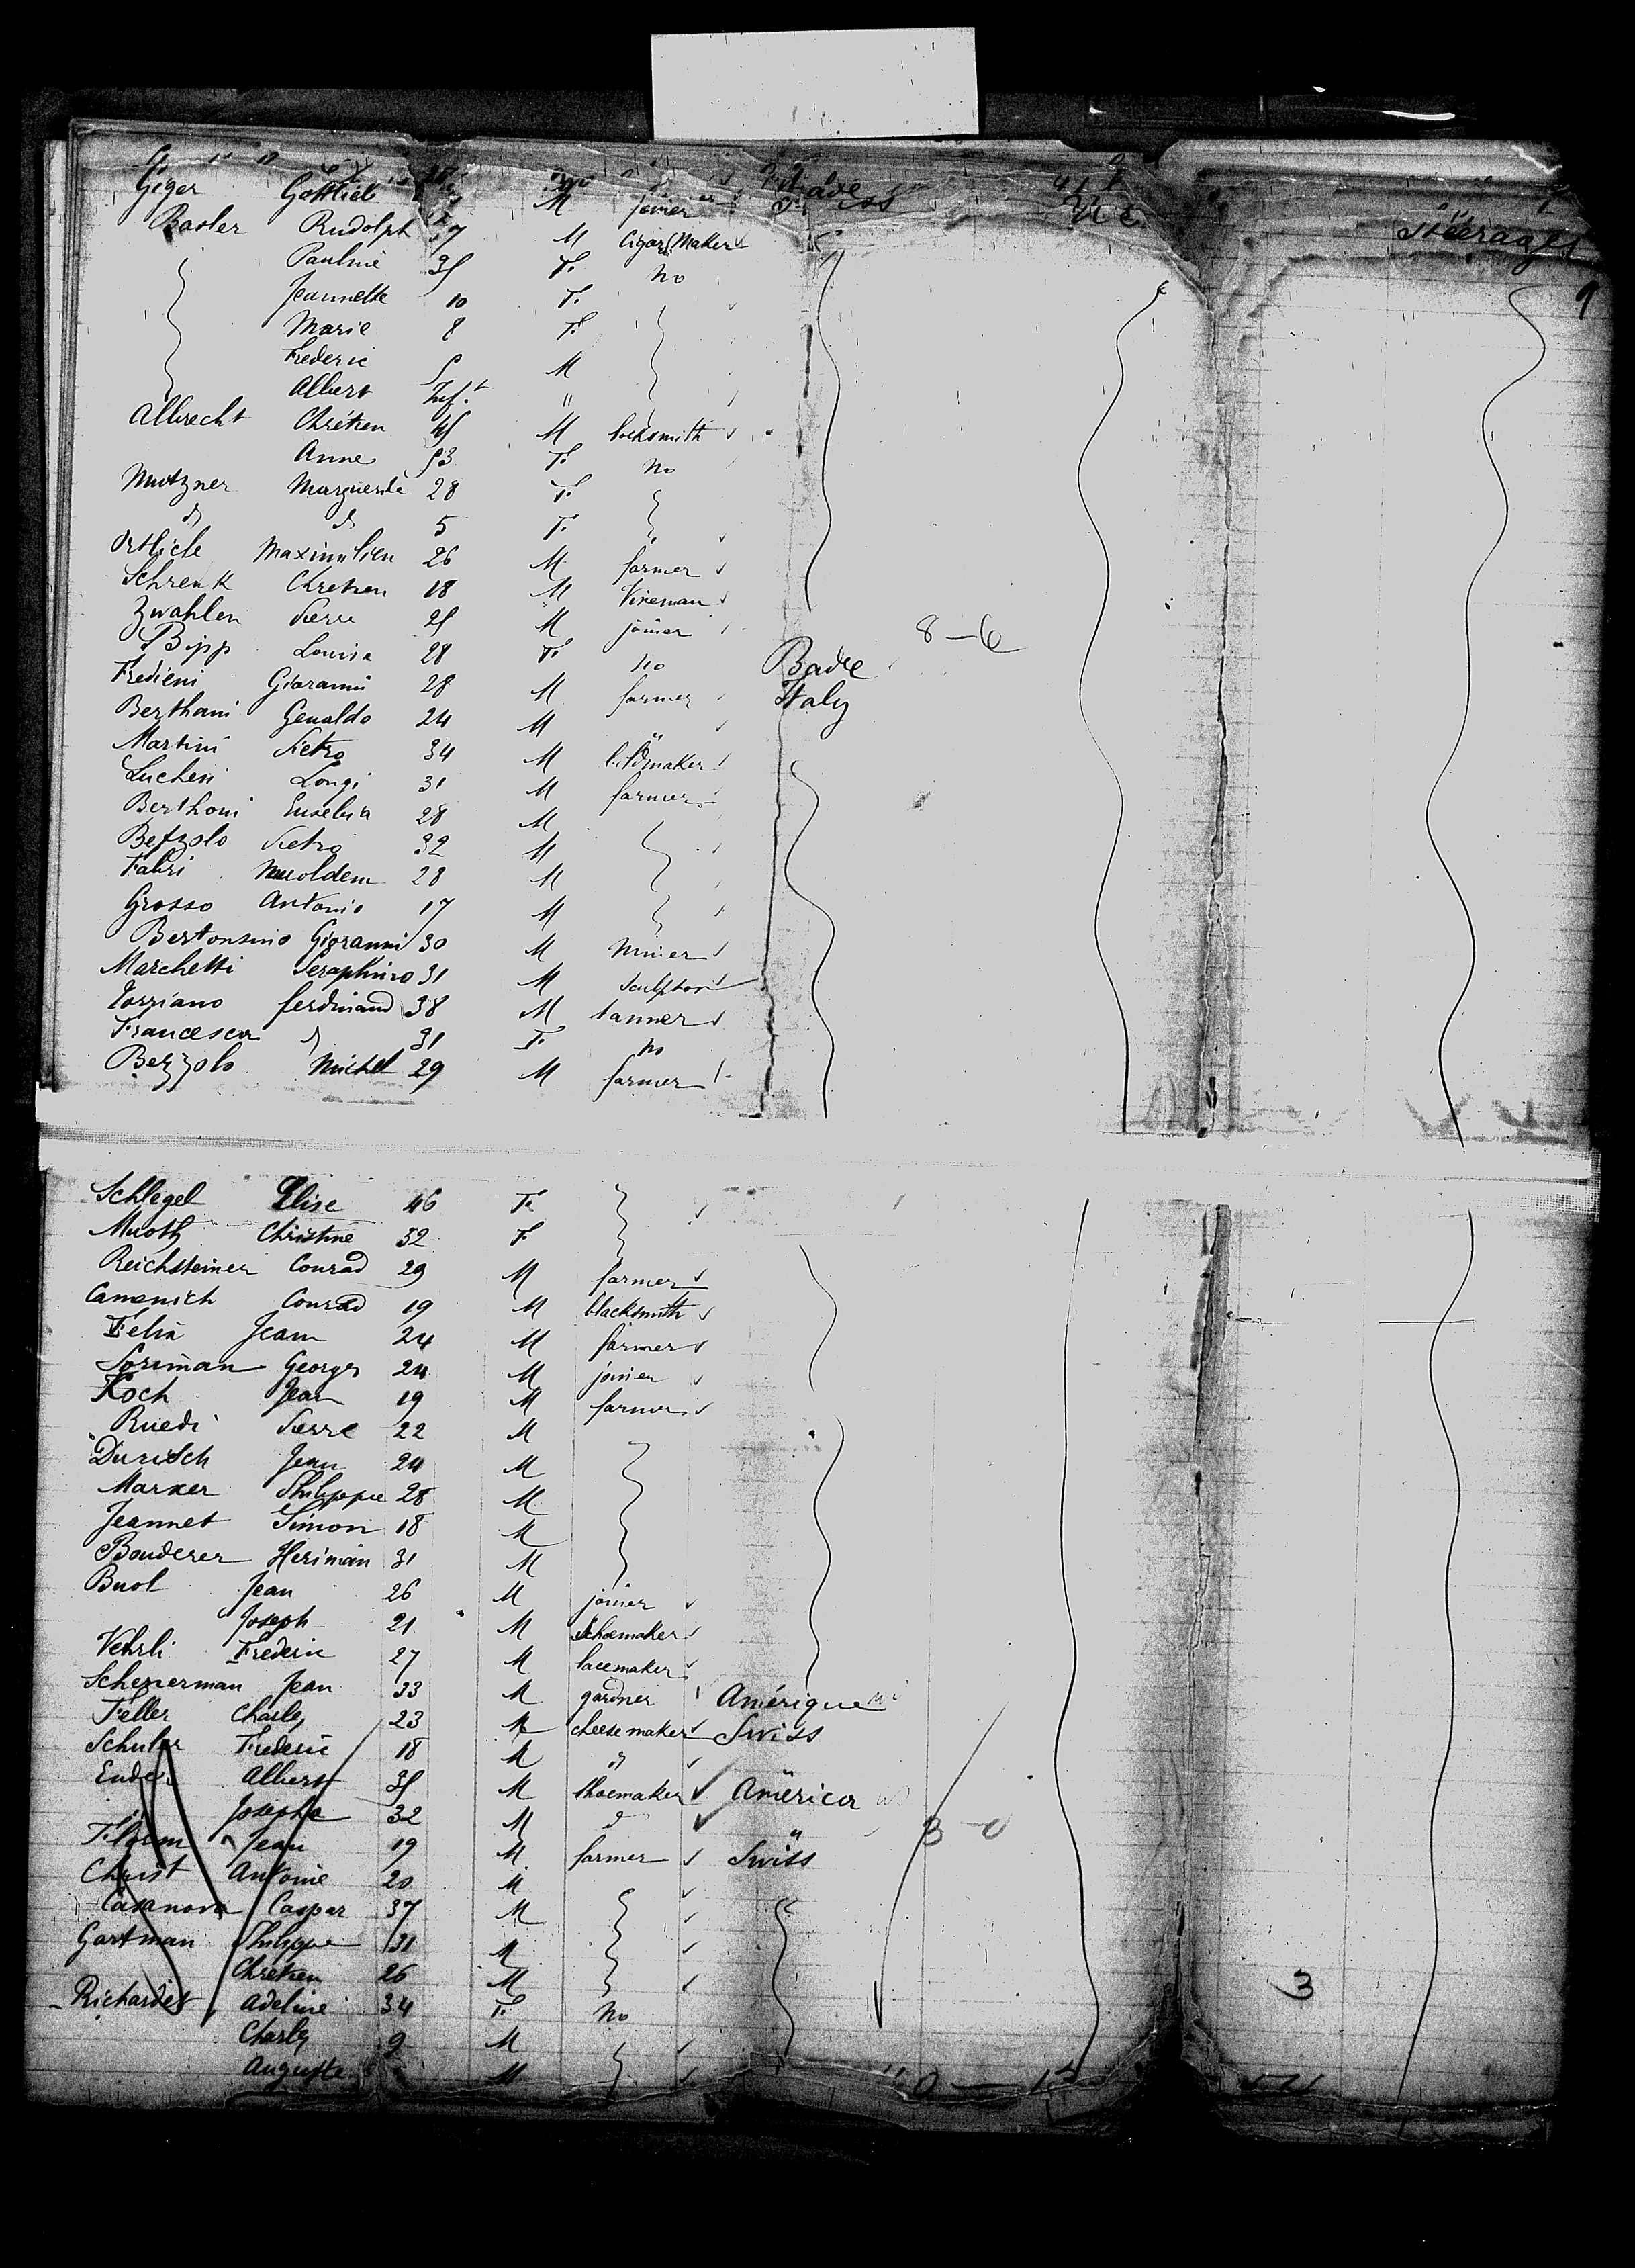 Giger Gottlieb M joiner Steerage
Basler Rudolph 37 M Cigar Maker
Pauline 35 F. no
Jeannette 10 F.
Marie 8 F.
Frederic 5 M
Albert Inf.t "
Albrecht Chrétien 45 M locksmith
Anne 53 F. no
Mutzner Marguerite 28 F.
d d 5 F.
Maximilien 26 M farmer
Schrenk Chretien 18 M Vineman
Zwahlen Pierre 25 M joiner 8-6
Bipp Louisa 28 F. no Bade
Fredieni Giovanni 28 M farmer Italy
Berthani Genaldo 24 M "
Martini Pietro 34 M
Lucheni Longi 31 M farmer
Berthoni Eusebia 28 M
Betzolo Pietro 32 M
Fabri 28 M
Grosso Antonio 17 M
Bertonsino Giovanni 30 M Miner
Marchetti Seraphino 31 M sculptor
Torriano ferdinand 38 M tanner
Francesca d 31 F. no
Bezzolo Michel 29 M farmer
Schlegel Elise 46 F.
Muoth Christine 52 F.
Reichsteiner Conrad 29 M farmer
Camenich Conrad 19 M blacksmith
Felix Jean 24 M farmer
Soriman George 24 M joiner
Koch Jean 19 M farmer
Ruedi Pierre 22 M
Durisch Jean 24 M
Marxer Philippe 28 M
Jeannet Simon 18 M
Bouderer Heriman 31 M
Buol Jean 26 M joiner
Joseph 21 M Schoemaker
Vehrli Frederic 27 M lacemaker
Scheuerman Jean 33 M gardner Amérique
Feller Charles 23 M cheese maker Swiss
Schuler Frederic 18 M " "
Ender Albert 35 M shoemaker America
Josepha 32 M d " 3-0
Florin Jean 19 M farmer Swiss
Christ Antoine 20 M
Casanova Caspar 37 M
Gartman Philippe 31 M
Chretien 26 M 3
Richardet Adeline 34 F. no
Charles 9 M
Auguste M